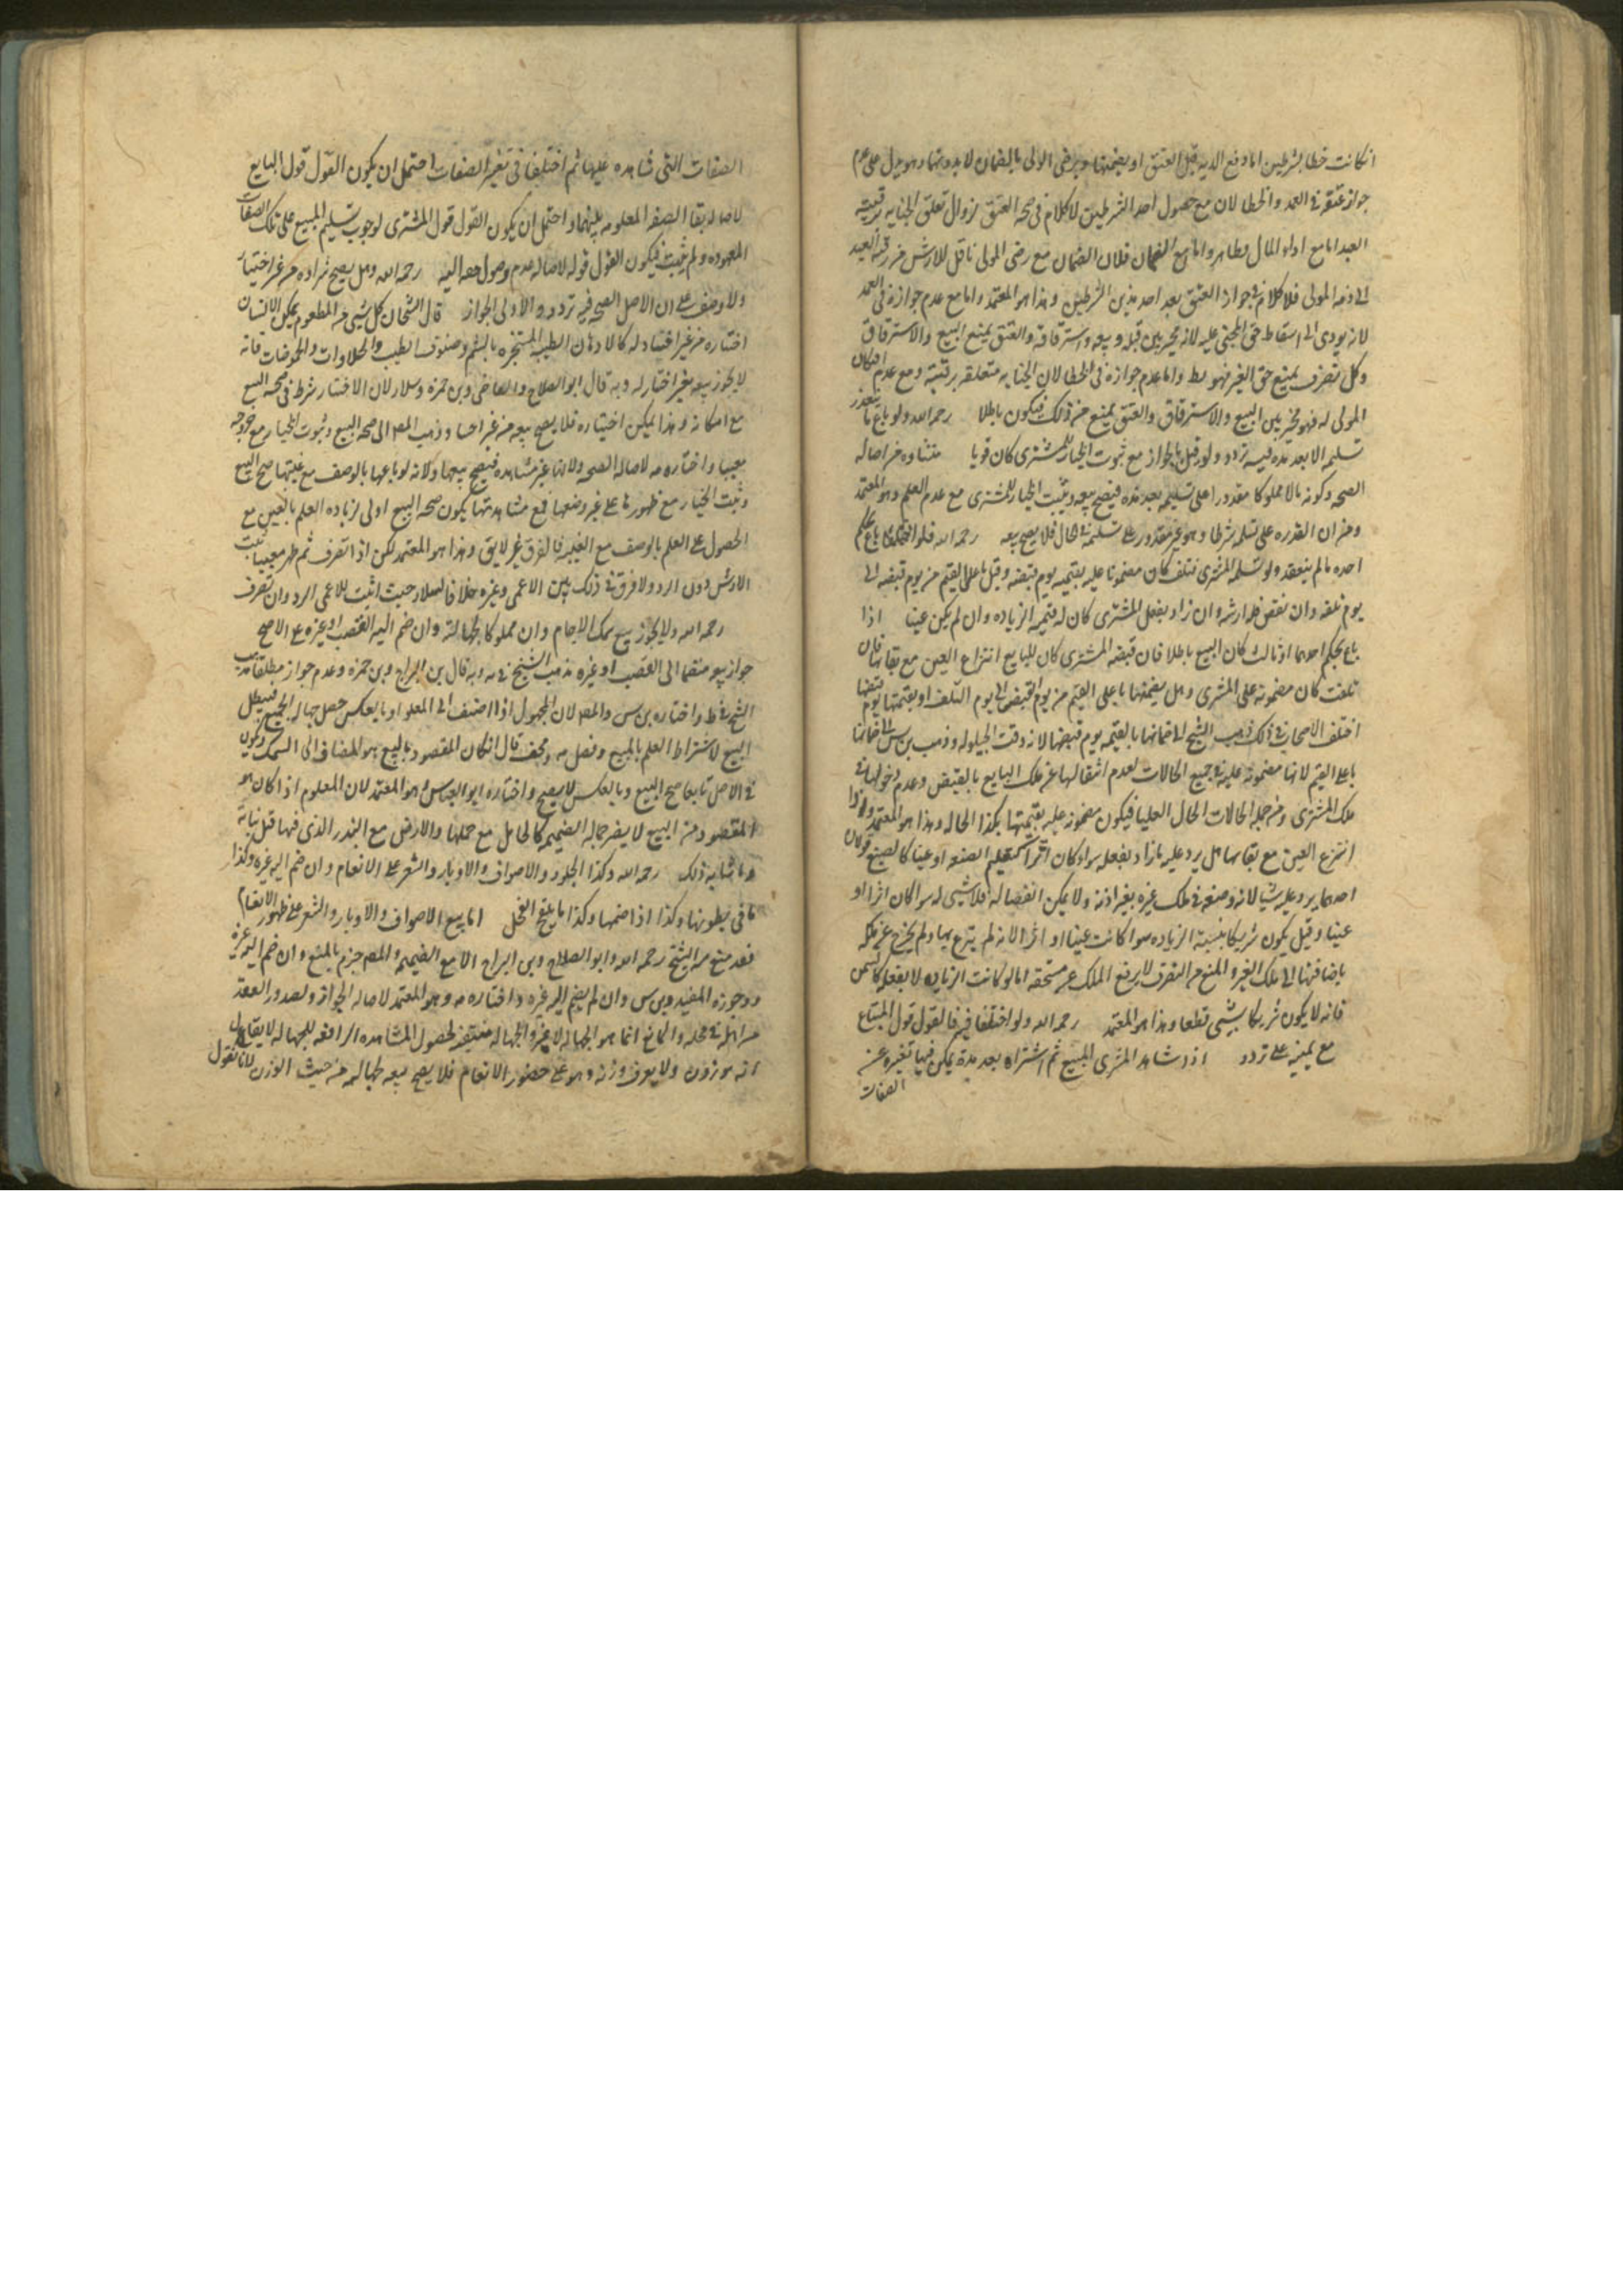 انكانت خطا بشرطين اما دفع الديه قبل العتق او يضمنها ويرضى الولى بالضمان لابدونهما وهو يدل على عدم
جواز عتقه فى العمد والخطا لان مع حصول احد الشرطين لاكلام فى صحه العتق لزوال تعلق الجنايه برقبته
العبد اما مع اداء المال فظاهر واما مع الضمان فلان الضمان مع رضى المولى ناقل للارش من رقبه العبد
الى ذمه المولى فلا كلام فى جواز العتق بعد احد هذين الشرطين وهذا هو المعتمد واما مع عدم جوازه فى العمد
لانه يودى الى اسقاط حق المجنى عليه لانه مخير بين قتله وبيعه واسترقاقه والعتق يمنع البيع والاسترقاق
وكل تصرف يمنع حق الغير فهو بط واما عدم جوازه فى الخطا لان الجنايه متعلقه برقبته ومع عدم افتكاك
المولى له فهو مخير بين البيع والاسترقاق والعتق يمنع من ذلك فيكون باطلا رحمه الله ولو باع ما يتعذر
تسليمه الا بعد مده فيه تردد ولو قيل بالجواز مع ثبوت الخيار للمشترى كان قويا منشاوه من اصاله
الصحه وكونه مالا مملوكا مقدورا على تسليمه بعد مده فيصح بيعه ويثبت الخيار للمشترى مع عدم العلم وهو المعتمد
ومن ان القدره على تسلمه شرط وهو غير مقدور على تسليمه فى الحال فلا يصح بيعه رحمه الله فلو باع بحكم
احدهما لم ينعقد ولو تسلمه المشترى فتلف كان مضمونا عليه بقيمته يوم قبضه وقيل باعلى القيم من يوم قبضه الى
يوم تلفه وان نقص فله ارشه وان زاد بفعل المشترى كان له قيمه الزياده وان لم يكن عينا اذا
باع بحكم احدهما او ثالث كان البيع باطلا فان قبضه المشترى كان للبايع انتزاع العين مع بقائها فان
تلفت كان مضمونه على المشترى وهل يضمنها باعلى القيم من يوم القبض الى يوم التلف او بقيمتها يوم قبضها
اختلف الاصحاب فى ذلك فذهب الشيخ الى ضمانها بالقيمه يوم قبضها لانه وقت الحيلوله وذهب بن س الى ضمانها
باعلى القيم لانها مضمونه عليه فى جميع الحالات لعدم انتقالها عن ملك البايع بالقبض وعدم دخولها فى
ملك المشترى ومن جمله الحالات الحال العليا فيكون مضمونه عليه بقيمتها بكذا الحاله وهذا هو المعتمد واذا
انتزع العين مع بقائها هل يرد عليه ما زاد بفعله سواء كان اثرا كتعليم الصنعه او عينا كالصبغ قولان
احدهما يرد عليه شيا لانه وضعه فى ملك غيره بغير اذنه ولا يمكن انفصاله فلا شيى له سوا كان اثرا او
عينا وقيل يكون شريكا بنسبه الزياده سوا كانت عينا او اثرا لانه لم يتبرع بها ولم يخرج عن ملكه
باضافتها الى ملك الغير والمنع من التصرف لا يرفع الملك عن مستحقه اما لو كانت الزياده لا بفعله كالسمن
فانه لا يكون شريكا بشيى قطعا وهذا هو المعتمد رحمه الله ولو اختلفا فيه فالقول قول المبتاع
مع يمينه على تردد اذا شاهد المشترى المبيع ثم اشتراه بعد مده يمكن فيها تغيره عن
الصفات
الصفات التى شاهده عليها ثم اختلفا فى تغير الصفات احتمل ان يكون القول قول البايع
لاصاله بقا الصفه المعلومه بينهما واحتمل ان يكون القول قول المشترى لوجوب تسليم المبيع على تلك الصفات
المعهوده ولم يثبت فيكون القول قوله لاصاله عدم وصول حقه اليه رحمه الله وهل يصح شراؤه من غير اختيار
ولا وصف على ان الاصل الصحه فيه تردد والاولى الجواز قال الشيخان كل شيى من المطعوم يمكن الانسان
اختباره من غير افساد له كالادهان الطيبه المستخبره بالشم وصنوف الطيب والحلاوات والحموضات فانه
لا يجوز بيعه بغير اختبار له وبه قال ابو الصلاح والقاضى وبن حمزه وسلار لان الاختبار شرط فى صحه البيع
مع امكانه وهذا يمكن اختباره فلا يصح بيعه من غير اختبار وذهب المص الى صحه البيع وثبوت الخيار مع خروجه
معيبا واختاره مه لاصاله الصحه ولانها غير مشاهده فيصح بيعها ولانه لو باعها بالوصف مع غيبتها صح البيع
وثبت الخيار مع ظهورها على غير وصفها فمع مشاهدتها يكون صحه البيع اولى لزياده العلم بالعين مع
الحصول على العلم بالوصف مع الغيبه فالفرق غير لايق وهذا هو المعتمد لكن اذا تصرف ثم ظهر معيبا ثبت
الارش دون الرد ولا فرق فى ذلك بين الاعمى وغيره خلافا لسلار حيث اثبت للاعمى الرد وان تصرف
رحمه الله ولا يجوز بيع سمك الاجام وان مملوكا لجهالته وان ضم اليه القصب او غيره على الاصح
جواز بيعه منضما الى القصب او غيره مذهب الشيخ فى يه وبه قال بن البراج وبن حمزه وعدم جوازه مطلقا مذهب
الشيخ فى ط واختاره بن س والمص لان المجهول اذا اضيف الى المعلوم او بالعكس حصل جهاله الجميع فيبطل
البيع لاشتراط العلم بالمبيع وفصل مه فى لف قال ان كان المقصود بالبيع هو المضاف الى السمك ويكون
فى الاصل تابعا صح البيع وبالعكس لا يصح واختاره ابو العباس وهو المعتمد لان المعلوم اذا كان هو
المقصود من البيع لا يضر جهاله الضميمه كالحامل مع حملها والارض مع البذر الذى فيها قبل نباته
وما شابه ذلك رحمه الله وكذا الجلود والاصواف والاوبار والشعر على الانعام وان ضم اليه غيره وكذا
ما فى بطونها وكذا اذا ضمهما وكذا ما يلقح الفحل اما بيع الاصواف والاوبار والشعر على ظهور الانعام
فقد منع منه الشيخ رحمه الله وابو الصلاح وبن البراج الا مع الضميمه والمص جزم بالمنع وان ضم اليه غيره
وجوزه المفيد وبن س وان لم يضم اليه غيره واختاره مه وهو المعتمد لاصاله الجواز ولصدور العقد
من اهله فى محله والمانع انما هو الجهاله لا غير والجهاله منتفيه لحصول المشاهده الرافعه للجهاله لا يقال
انه موزون ولا يعرف وزنه وهو على ظهور الانعام فلا يصح بيعه لجهالته من حيث الوزن لانا نقول